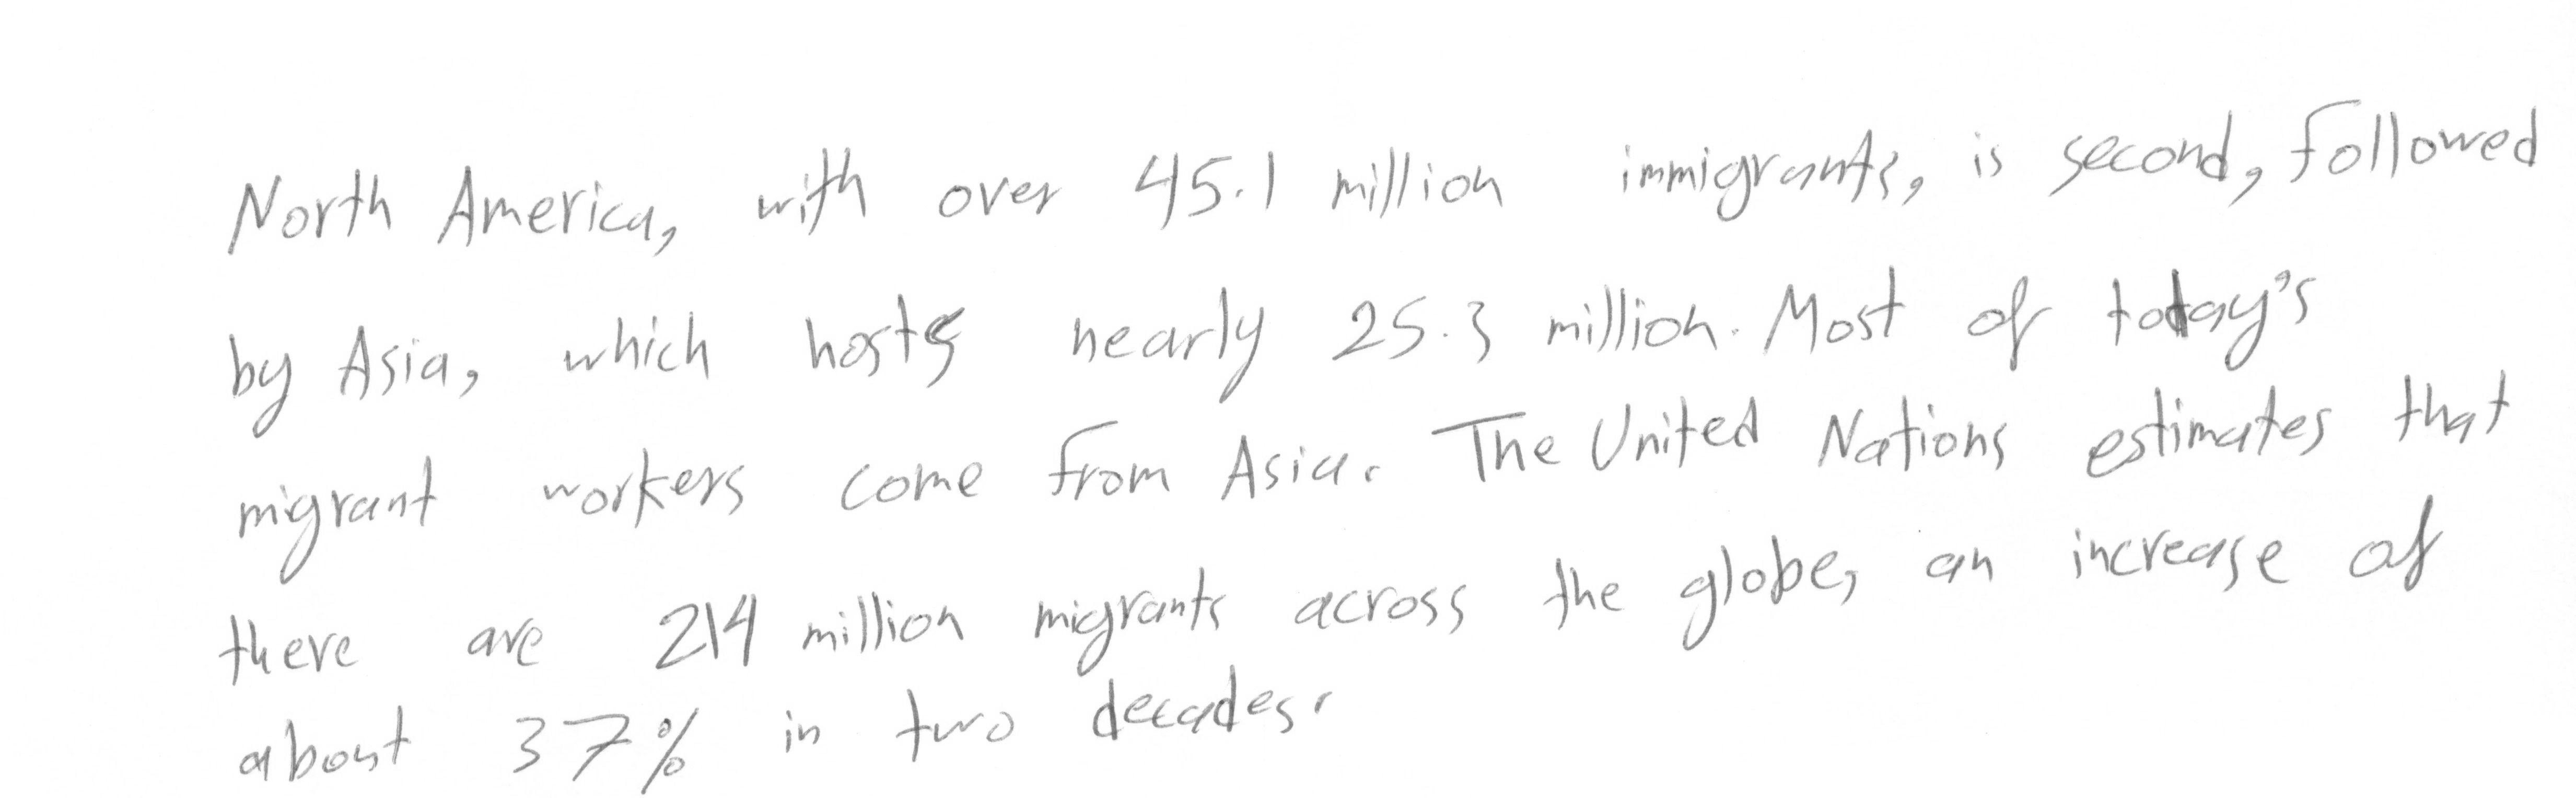 North America, with over 45.1 million immigrants, is second, followed
by Asia, which hosts nearly 25.3 million. Most of today's
migrant workers come from Asia. The United Nations estimates that
there are 214 million migrants across the globe, an increase of
about 37% in two decades.